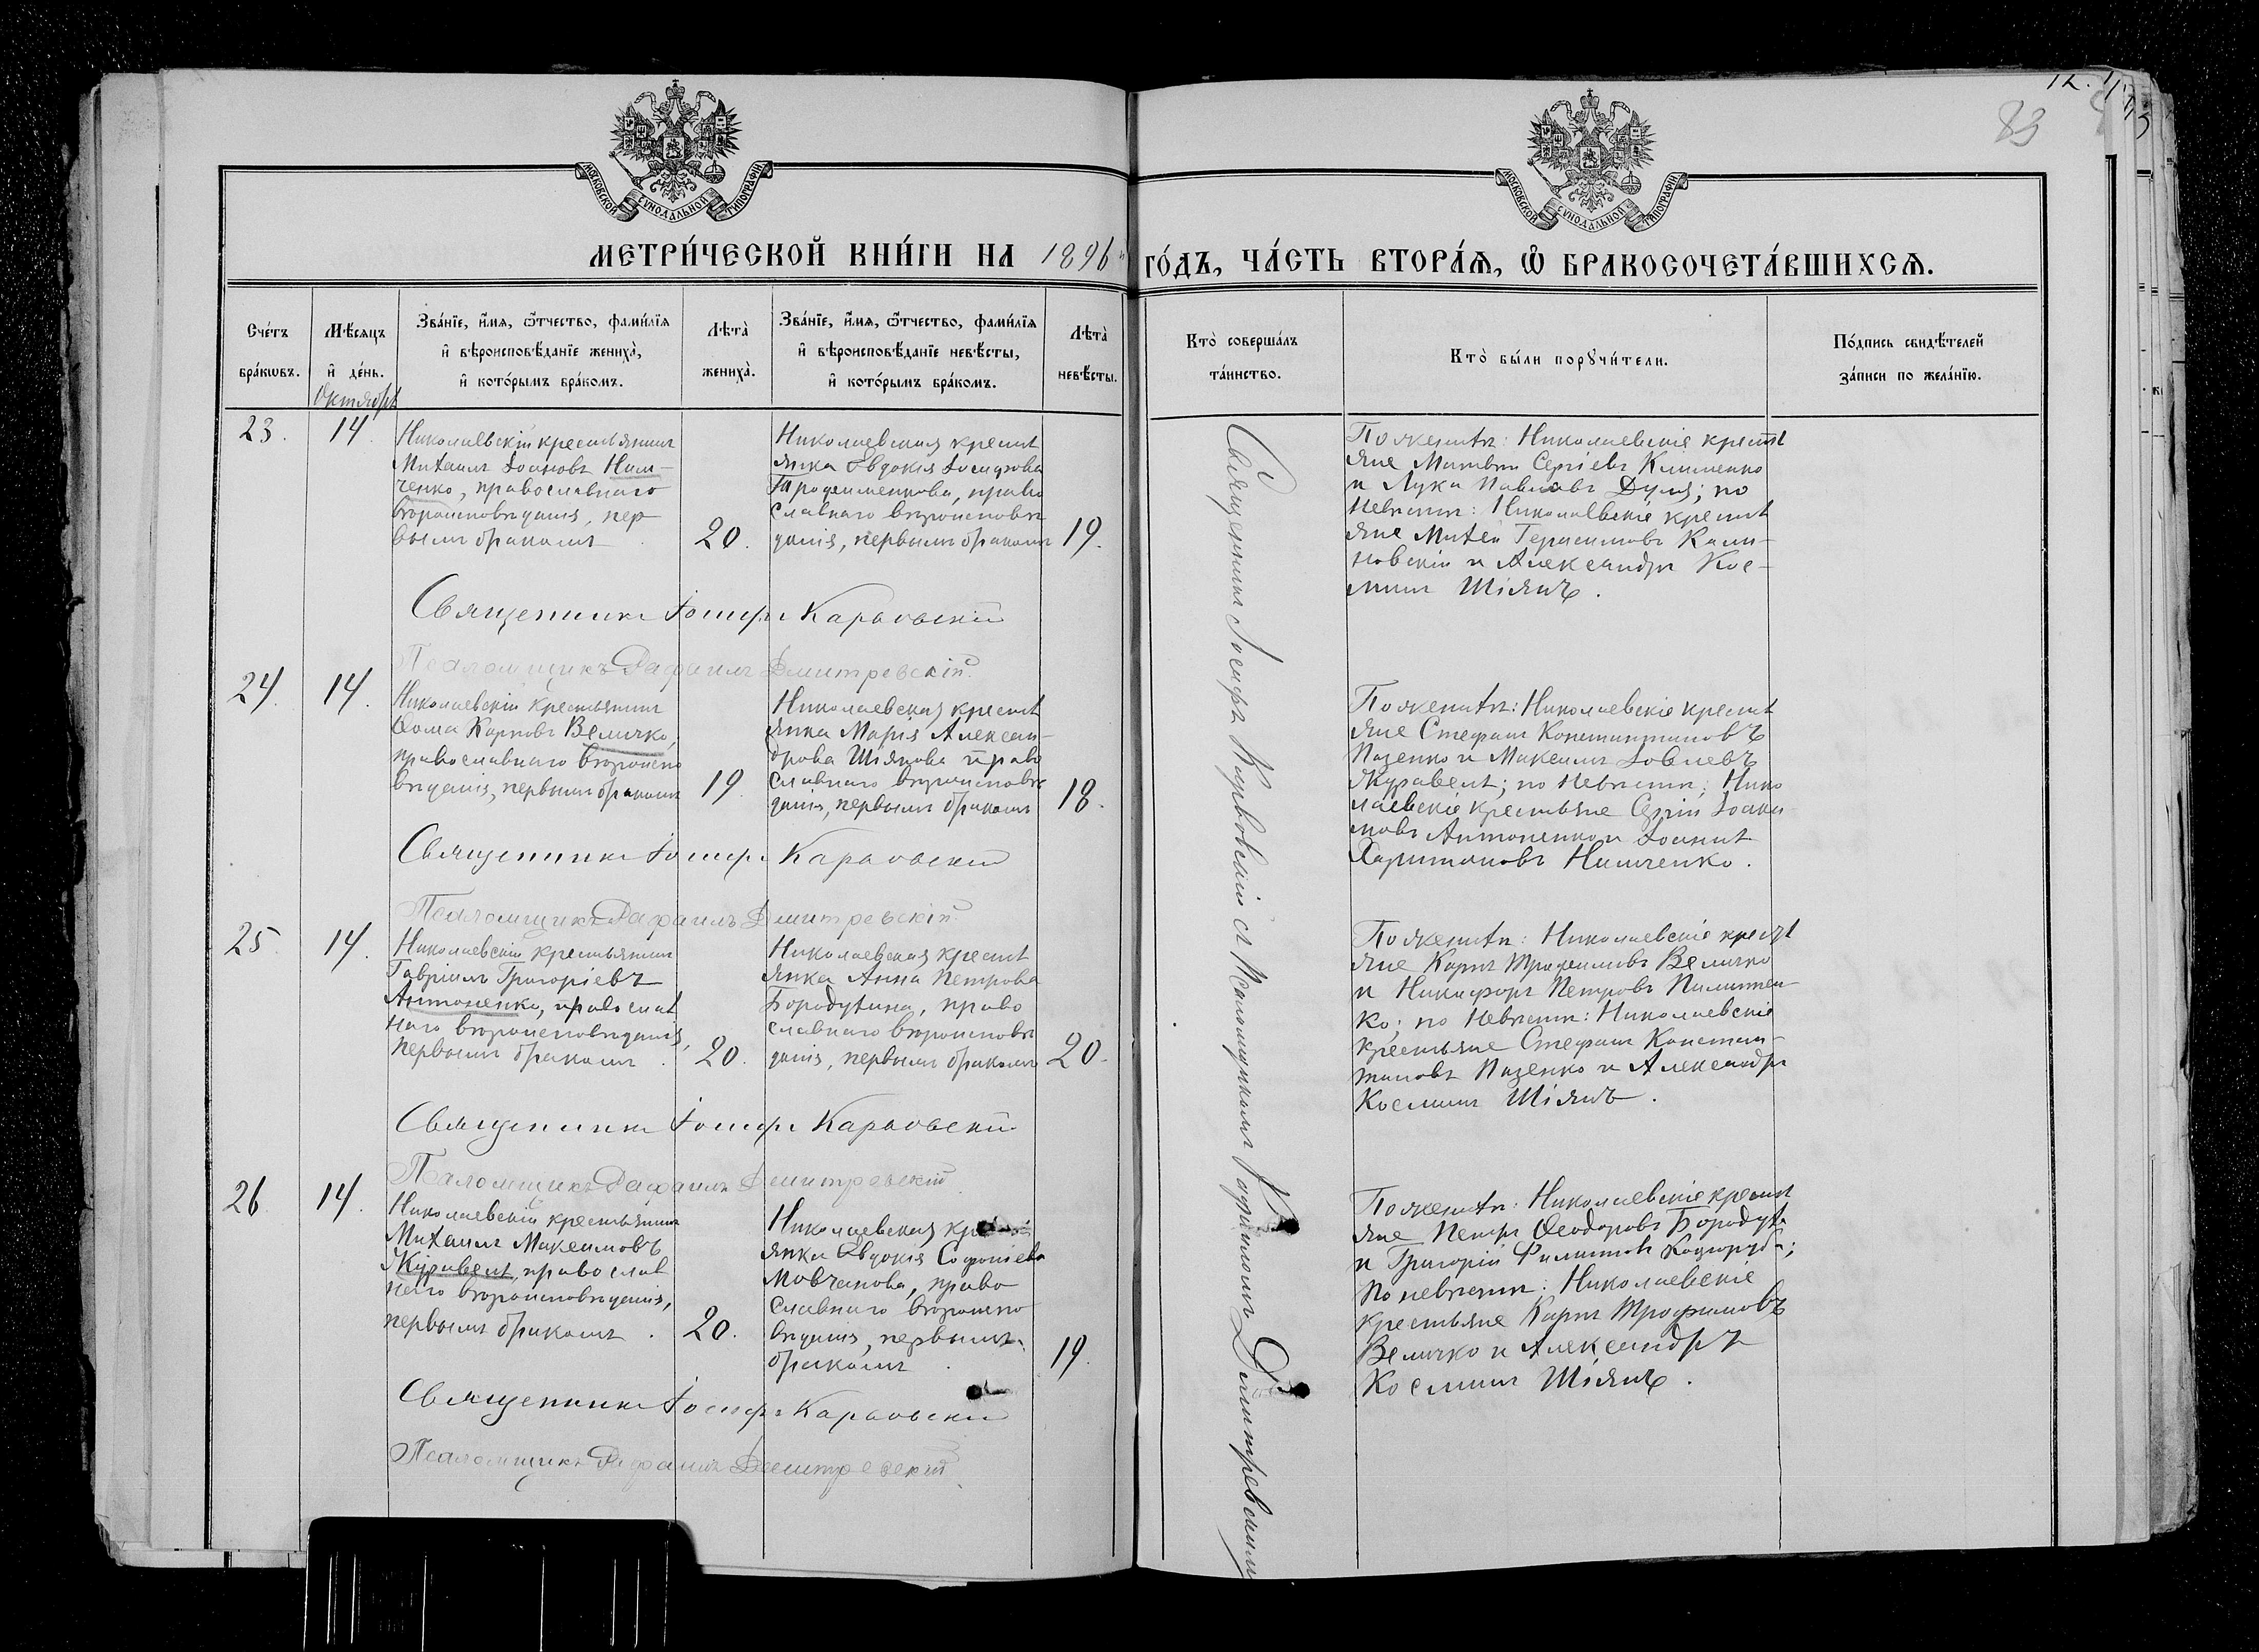 12.
83
МОСКОВСКОЙ СУНОДАЛЬНОЙ ТИПОГРАФІИ
МОСКОВСКОЙ СУНОДАЛЬНОЙ ТИПОГРАФІИ
МЕТРИ́ЧЕСКОЙ КНИ́ГИ НА 1896 ГО́ДЪ, ЧА́СТЬ ВТОРА́Я, Ѿ БРАКОСОЧЕТА́ВШИХСЯ.
Сче́тъ бра́кѡвъ.
Мѣ́сяцъ и҆ де́нь.
Октябрь
Зва́нїе, и҆́мя, ѻ҆́тчество, фами́лїя
и҆ вѣроисповѣ́данїе жениха̀,
и҆ кото́рымъ бра́комъ.
Лѣта̀ жениха̀.
Зва́нїе, и҆́мя, ѻ҆́тчество, фами́лїя
и҆ вѣроисповѣ́данїе невѣ́сты,
и҆ кото́рымъ бра́комъ.
Лѣта̀ невѣ́сты.
Кто̀ соверша́лъ
та́инство.
Кто̀ бы́ли порꙋчи́тели.
По́дпись свидѣ́телей
за́писи по жела́нїю.
23.
14.
Николаевскій крестьянинъ
Михаилъ Іоановъ Ним-
ченко, православнаго
вѣроисповѣданія, пер
вымъ бракомъ
20.
Николаевская крест
янка Евдокія
право
славнаго вѣроисповѣ
данія, первымъ бракомъ
19.
По женихѣ: Николаевскіе крест
яне Матвѣй Сергіевъ Клименко
и Лука Павловъ Дума; по
невѣстѣ: Николаевскіе крест
яне Матѳій Герасимовъ Кали-
новскій и Александръ Кос-
минъ Шіянъ.
Священникъ Іосифъ Карповскій
Псаломщикъ Рафаилъ Дмитревскій
24.
14.
Николаевскій крестьянинъ
Ѳома Карповъ Величко,
православнаго вѣроиспо
вѣданія, первымъ бракомъ
19
Николаевская крест
янка Марія Алексан-
дрова Шіянова право
славнаго вѣроисповѣ
данія, первымъ бракомъ
18.
По женихѣ: Николаевскіе крест
яне Стефанъ Константиновъ
Пазенко и Максимъ Іовлевъ
Журавель; по невѣстѣ: Нико
лаевскіе крестьяне Сергій Іоаки
мовъ Антоненко и Іоаннъ
Харитоновъ Нимченко.
Священникъ Іосифъ Карповскій
Псаломщикъ Рафаилъ Дмитревскій
25
14.
Николаевскій крестьянинъ
Гавріилъ Григоріевъ
Антоненко, православ
наго вѣроисповѣданія,
первымъ бракомъ.
20.
Николаевская крест
янка Анна Петрова
Бородухина, право
славнаго вѣроисповѣ
данія, первымъ бракомъ
20.
По женихѣ: Николаевскіе крест
яне Карпъ Трофимовъ Величко
и Никифоръ Петровъ Пилипен-
ко; по невѣстѣ: Николаевскіе
крестьяне Стефанъ Констан-
тиновъ Пазенко и Александръ
Косминъ Шіянъ.
Священникъ Іосифъ Карповскій
Псаломщикъ Рафаилъ Дмитревскій
26
14.
Николаевскій крестьянинъ
Михаилъ Максимовъ
Журавель, православ
наго вѣроисповѣданія,
первымъ бракомъ.
20.
Николаевская крест
янка Евдокія Софоніева
Мовчанова, право
славнаго вѣроиспо
вѣданія, первымъ
бракомъ
19.
По женихѣ: Николаевскіе крест
яне Петръ Ѳеодоровъ Бородуха
и Григорій Филиповъ
по невѣстѣ: Николаевскіе
крестьяне Карпъ Трофимовъ
Величко и Александръ
Косминъ Шіянъ.
Священникъ Іосифъ Карповскій
Псаломщикъ Рафаилъ Дмитревскій
Священникъ Іосифъ Карповскій съ Псаломщикомъ Рафаиломъ Дмитревскимъ